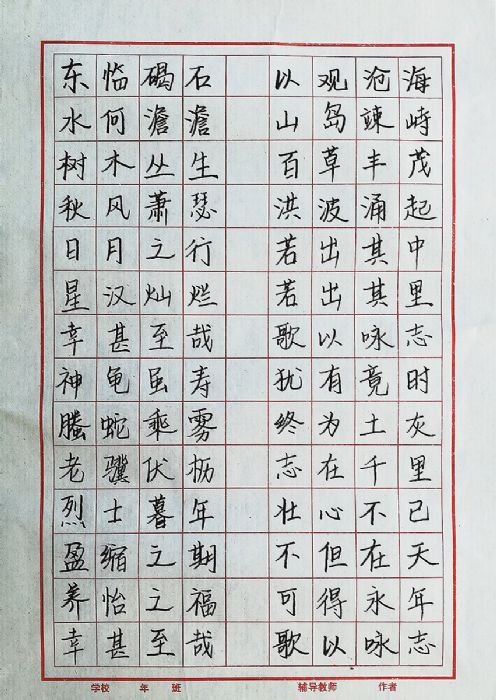 东临碣石 以观沧海
水何澹澹 山岛竦峙
树木丛生 百草丰茂
秋风萧瑟 洪波涌起
日月之行 若出其中
星汉灿烂 若出其里
幸甚至哉 歌以咏志
神龟虽寿 犹有竟时
螣蛇乘雾 终为土灰
老骥伏枥 志在千里
烈士暮年 壮心不已
盈缩之期 不但在天
养怡之福 可得永年
幸甚至哉 歌以咏志
学校 年 班 辅导教师 作者